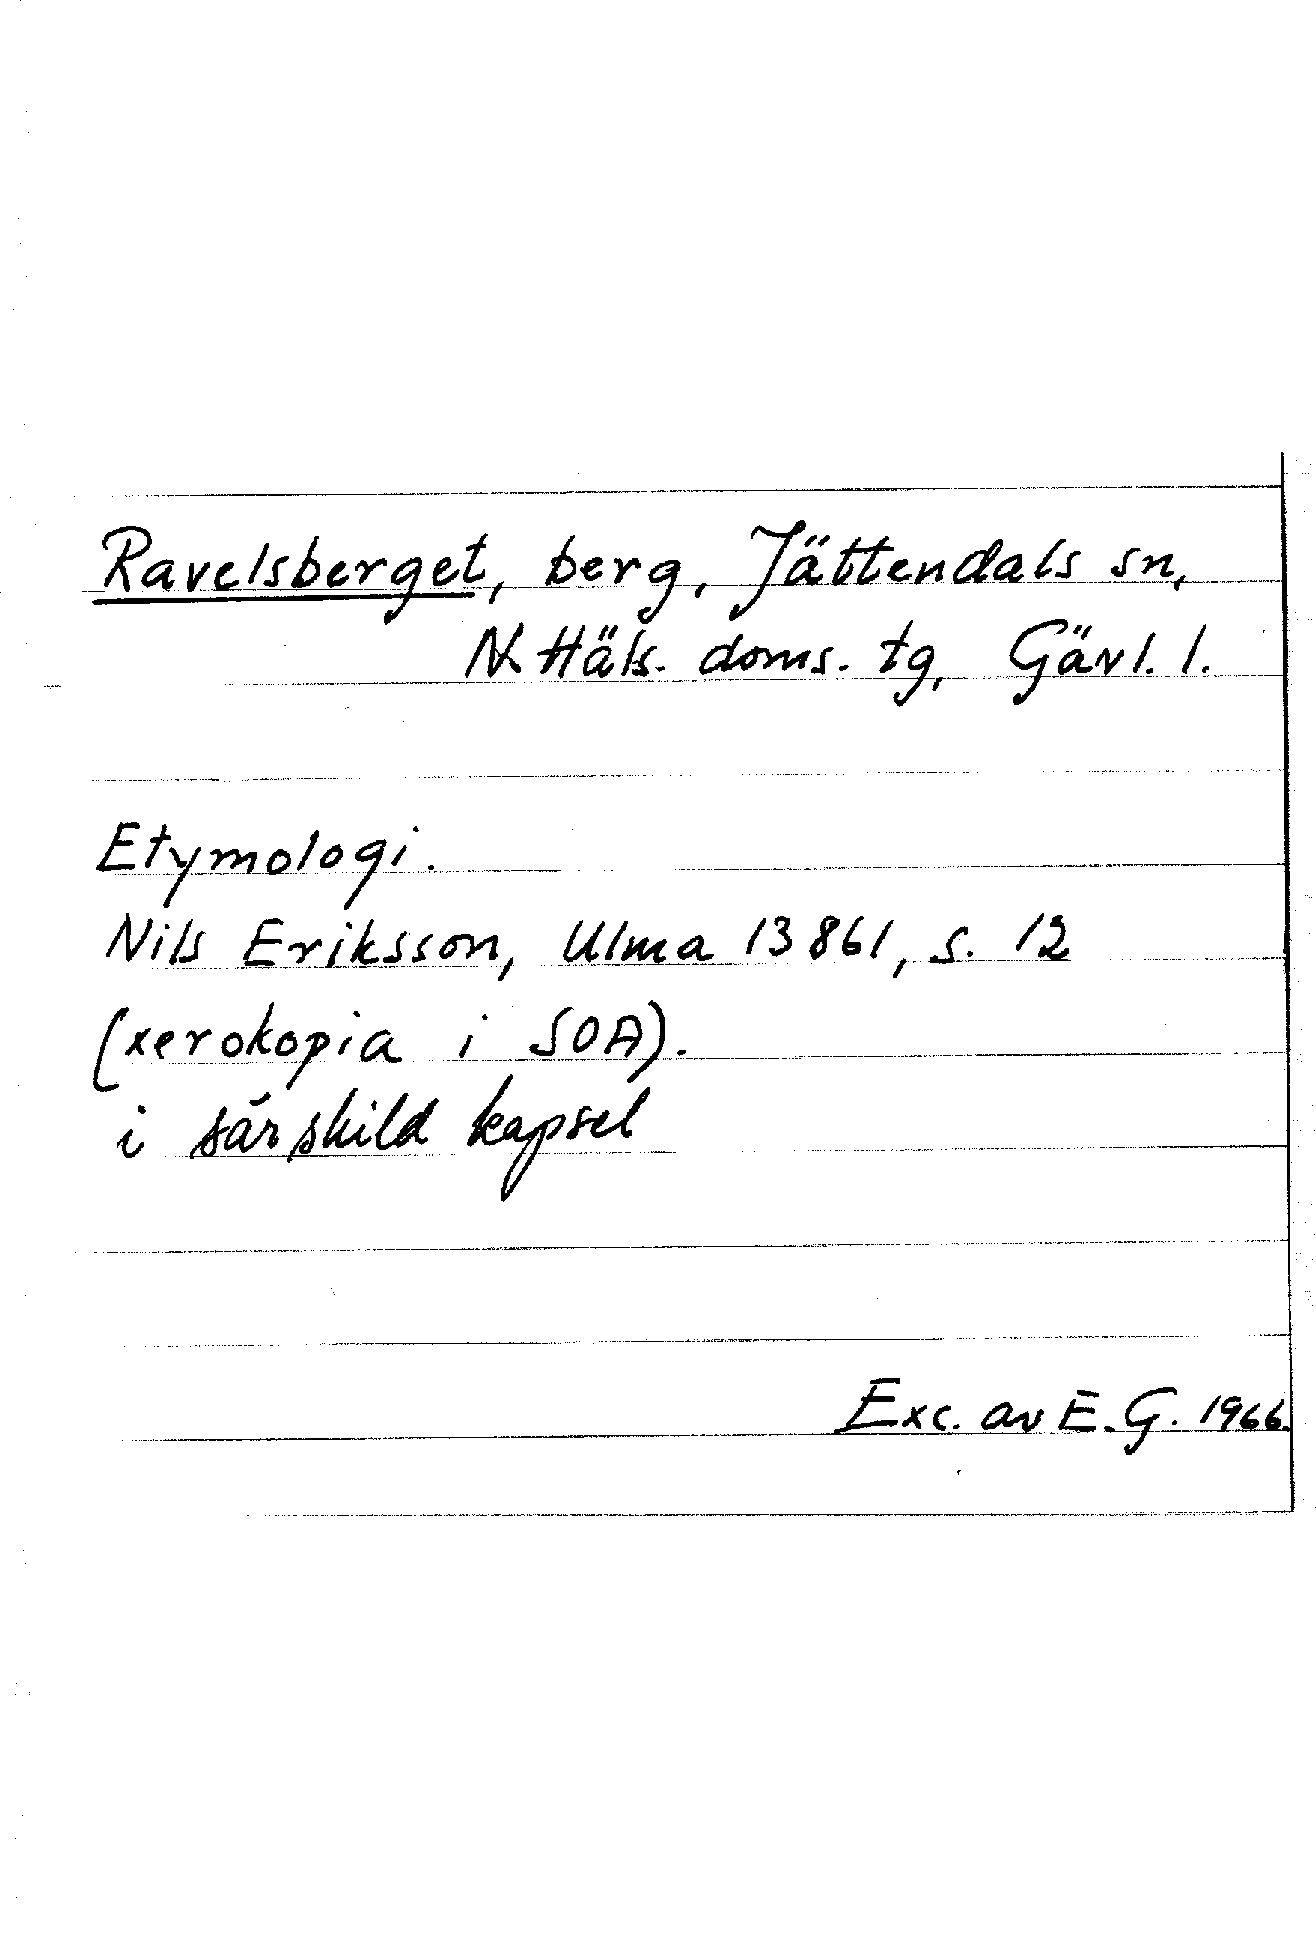 Ravelsberget, berg, Jättendals sn,
N. Häls. doms. tg, Gävl. l.
Etymologi.
Nils Eriksson, Ulma 13861, s. 12
(xerokopia i SOA).
i särskild kapsel
Exc. av E. G. 1966.